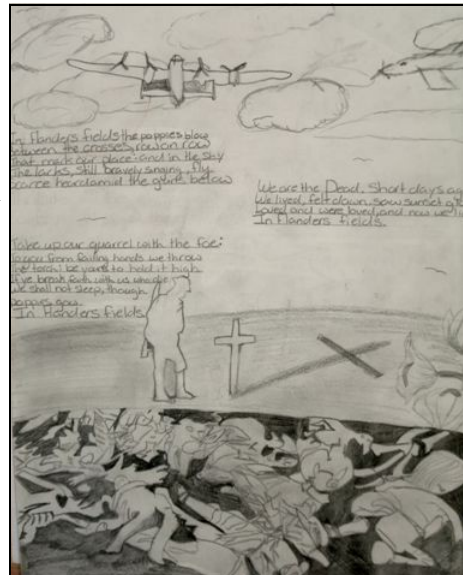 In Flanders fields the poppies blow
between the crosses, row on row
That mark our place: and in the sky
The larks, still bravely singing, fly
scarce heard amid the guns below
We are the Dead. Short days ag
We lived, felt dawn, saw sunset
Loved and were loved, and now we li
In Flanders fields.
Take up our quarrel with the foe:
To you from failing hands we throw
The torch be yours to hold it high
If ye break faith with us who die
We shall not sleep, though
poppies grow
In Flanders fields